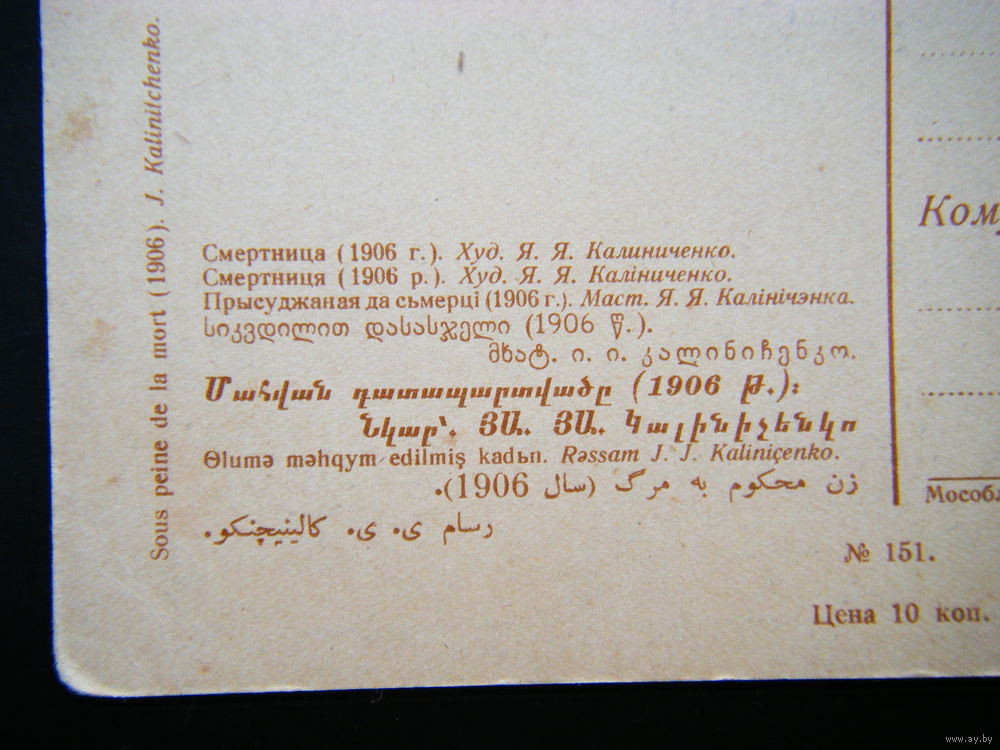 Sous peine de la mort (1906). J. Kalinitchenko.
Смертница (1906 г.). Худ. Я. Я. Калиниченко.
Смертниця (1906 р.). Худ. Я. Я. Каліниченко.
Прысуджаная да сьмерці (1906 г.). Маст. Я. Я. Калінічэнка.
სიკვდილით დასასჯელი (1906 წ.).
მხატ. ი. ი. კალინიჩენკო.
Մահվան դատապարտվածը (1906 Թ.)։
Նկար՝. ՅԱ. ՅԱ. Կալինիչենկո
Ɵlumə məhqym edilmiş kadьn. Rəssam J. J. Kaliniçenko.
زن محکوم به مرگ (سال 1906).
رسام ی. ی. کالینیچنکو.
Мособл
№ 151.
Цена 10 коп.
www.ay.by